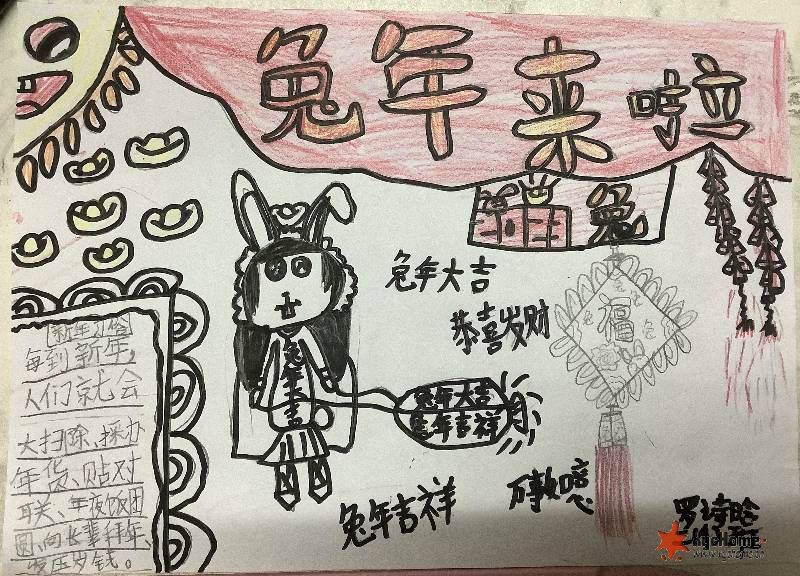 兔年来啦
兔
兔年大吉
恭喜发财
福
兔年吉
兔年大吉
兔年吉祥
兔年吉祥
每到新年，
人们就会
大扫除、採办
年货、贴对
联、年夜饭团
圆、向长辈拜年、
发压岁钱。
罗诗晗